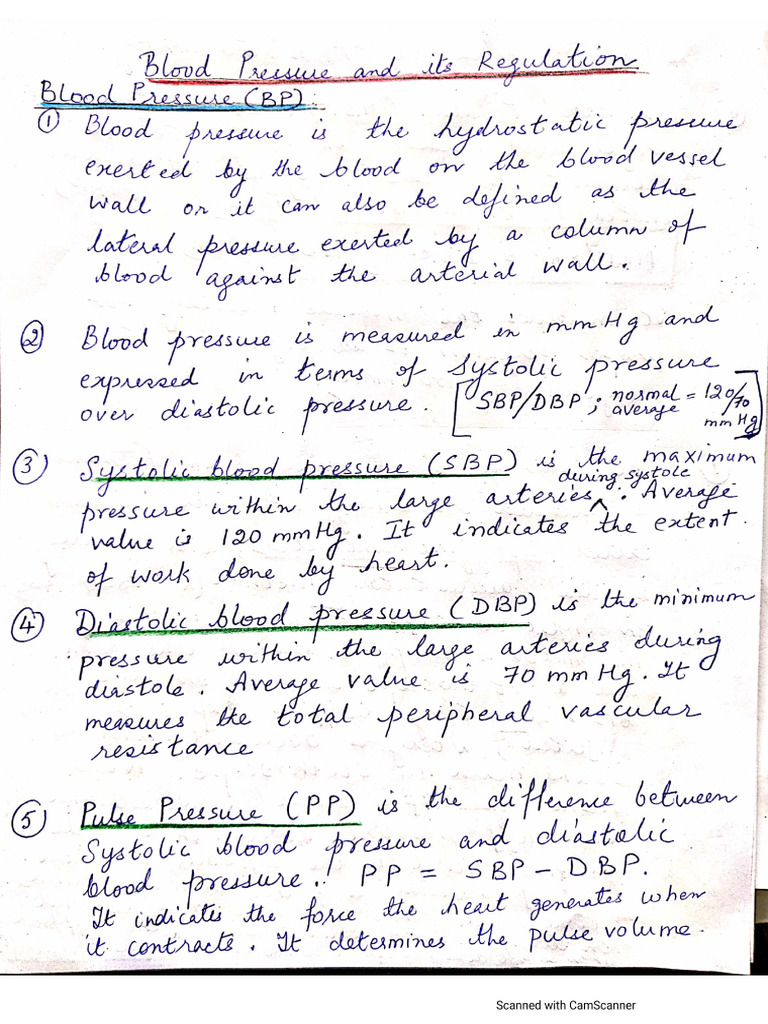 Blood Pressure and its Regulation
Blood Pressure (BP):
① Blood pressure is the hydrostatic pressure
exerted by the blood on the blood vessel
wall or it can also be defined as the
lateral pressure exerted by a column of
blood against the arterial wall.
② Blood pressure is measured in mmHg and
expressed in terms of systolic pressure
over diastolic pressure. [SBP/DBP ; normal average = 120/70 mmHg]
③ Systolic blood pressure (SBP) is the maximum
pressure within the large arteries during systole. Average
value is 120 mmHg. It indicates the extent
of work done by heart.
④ Diastolic blood pressure (DBP) is the minimum
pressure within the large arteries during
diastole. Average value is 70 mmHg. It
measures the total peripheral vascular
resistance
⑤ Pulse Pressure (PP) is the difference between
Systolic blood pressure and diastolic
blood pressure. PP = SBP - DBP.
It indicates the force the heart generates when
it contracts. It determines the pulse volume.
Scanned with CamScanner